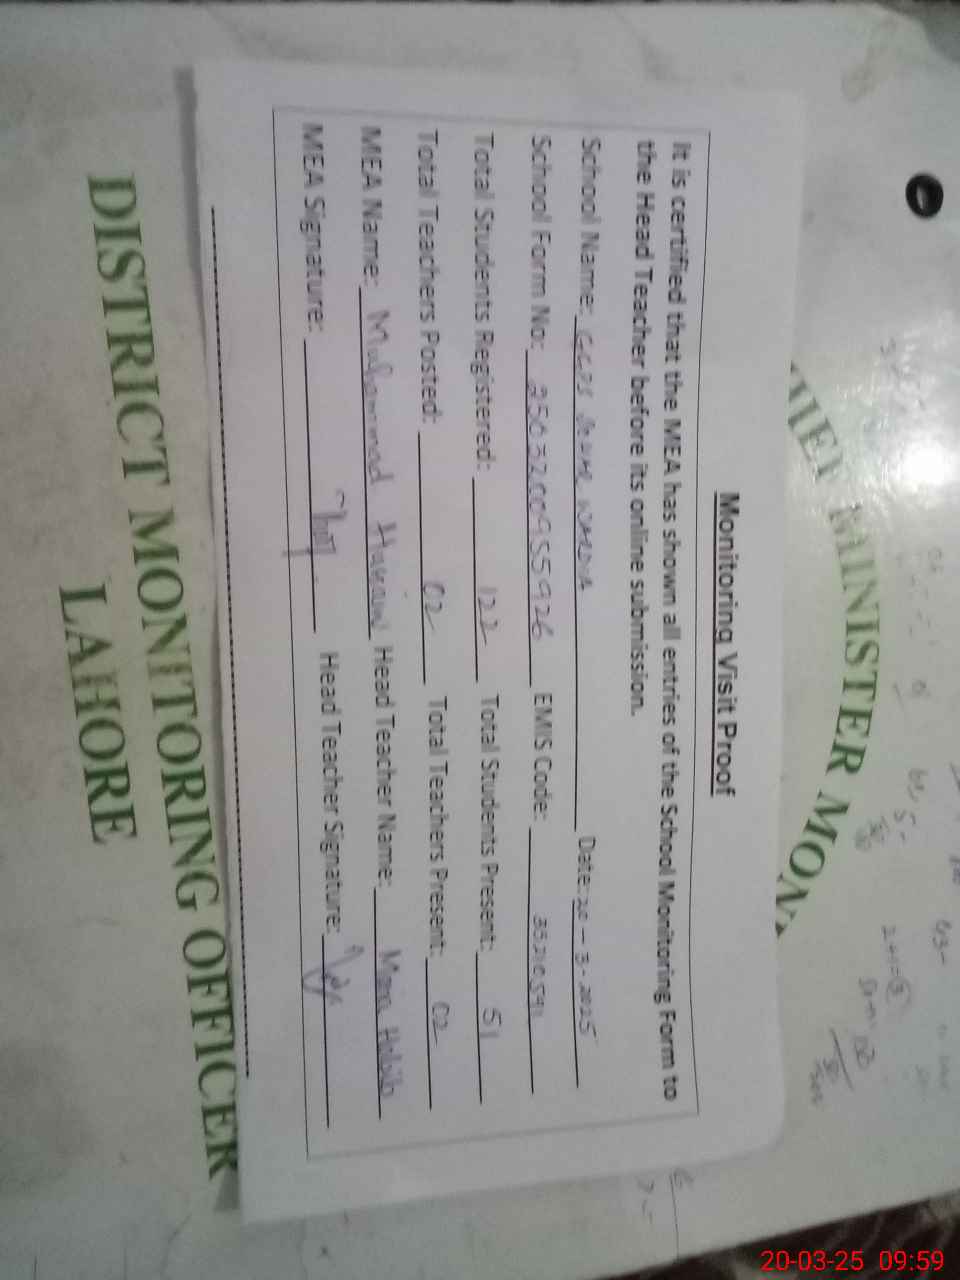 Monitoring Visit Proof
It is certified that the MEA has shown all entries of the School Monitoring Form to
the Head Teacher before its online submission.
School Name: Date: 20-3-2025
School Form No: 25032009555926 EMIS Code: 35210591
Total Students Registered: 122 Total Students Present: 51
Total Teachers Posted: 02 Total Teachers Present: 02
MEA Name: Muhammad Hussain Head Teacher Name: Maria Habib
MEA Signature: Head Teacher Signature:
MINISTER MON
DISTRICT MONITORING OFFICER
LAHORE
20-03-25 09:59